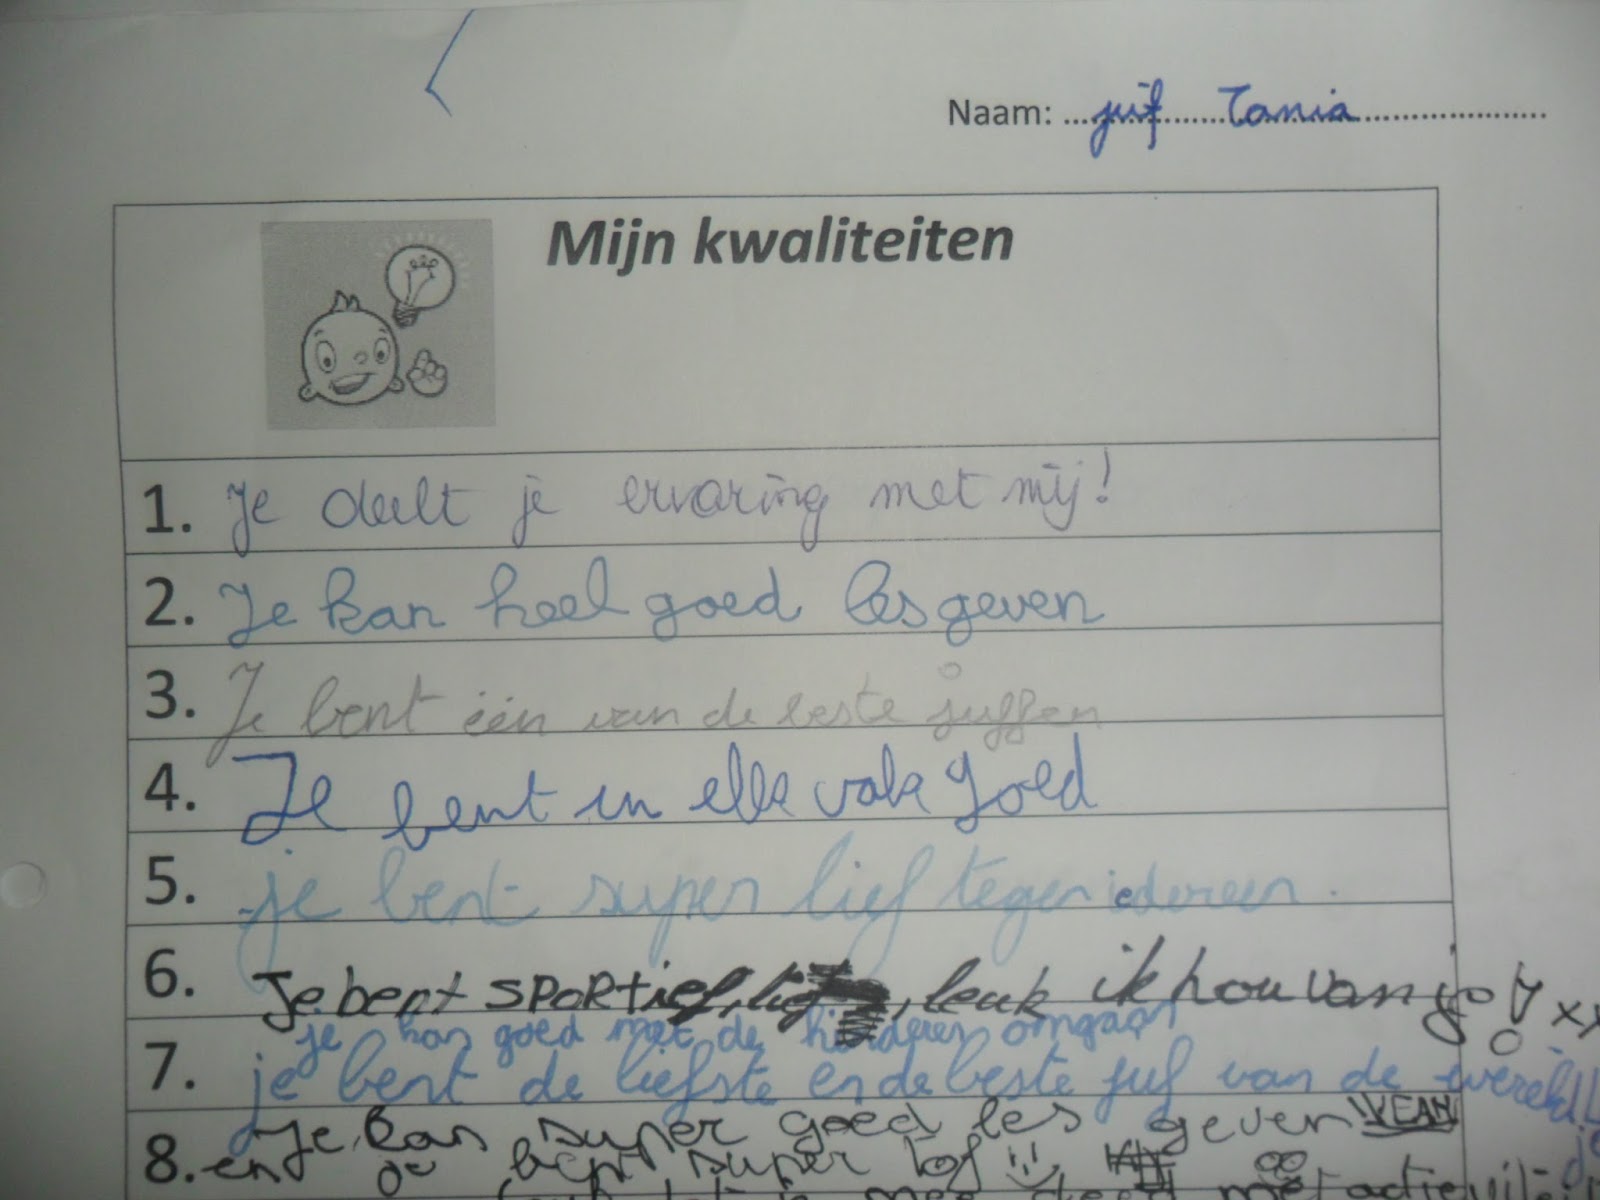 Naam: juf Tania
Mijn kwaliteiten
1. Je deelt je ervaring met mij!
2. Je kan heel goed lesgeven
3. Je bent één van de beste juffen
4. Je bent in elk vak goed
5. je bent super lief tegen iedereen.
6. Je bent sportief, lief, leuk ik hou van je! xx
je kan goed met de kinderen omgaan
7. je bent de liefste en de beste juf van de wereld!!
8. Je kan super goed les geven
en je bent super tof